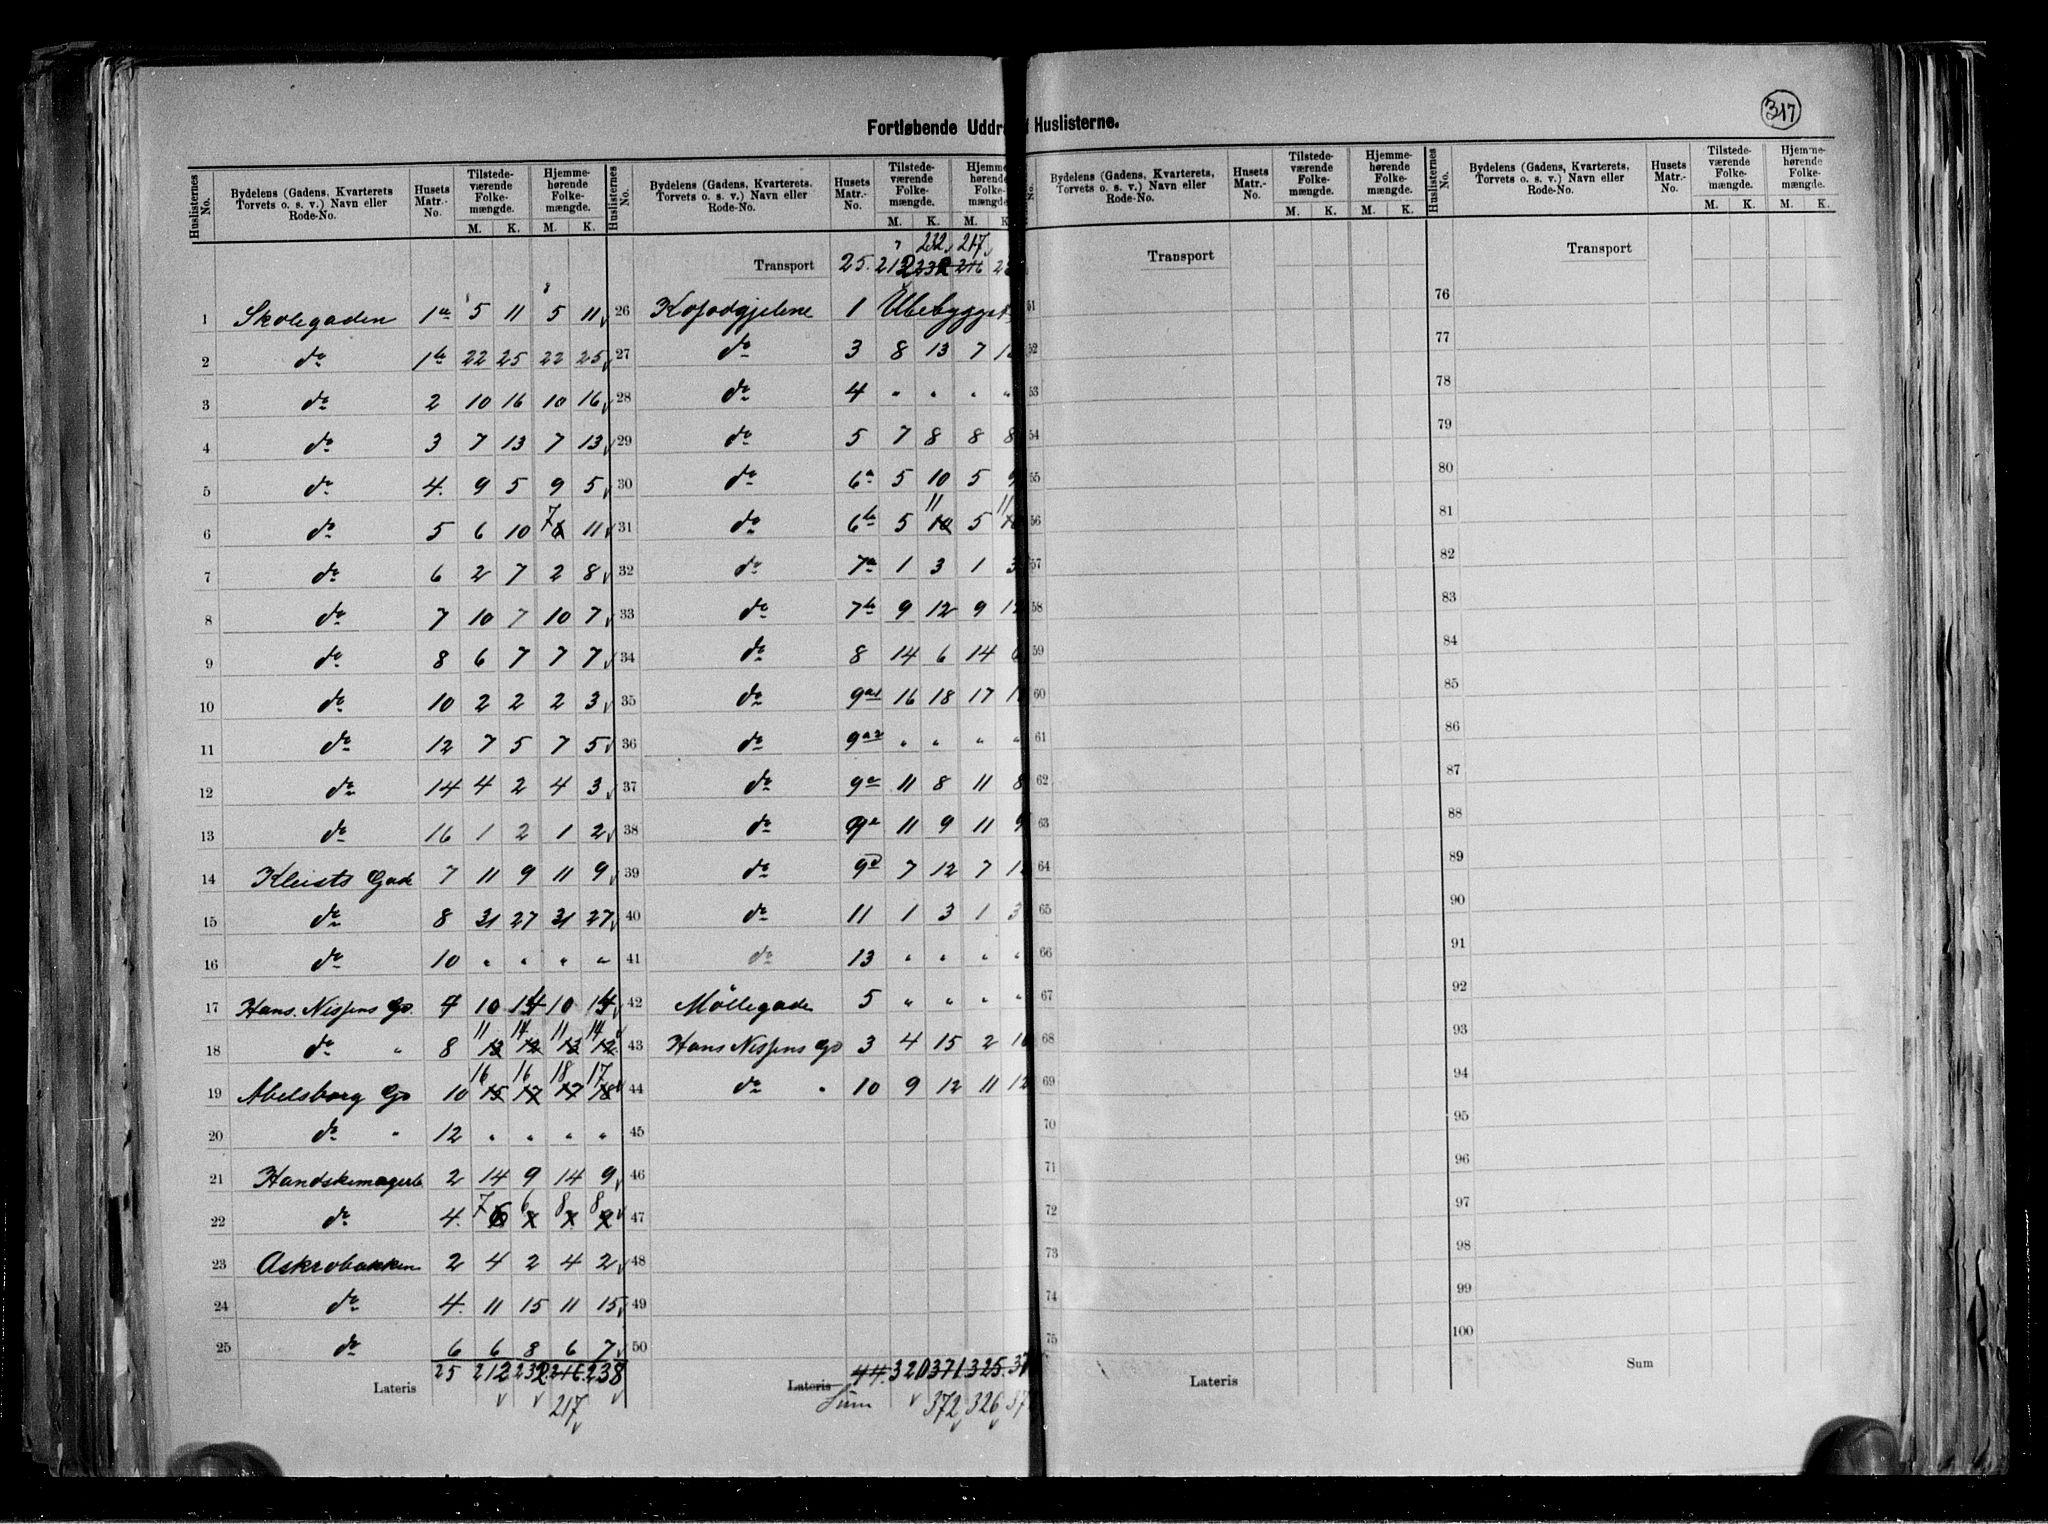 317
Fortløbende Uddr Huslisterne.
Huslisternes No. | Bydelens (Gadens, Kvarterets Torvets o. s. v.) Navn eller Rode-No. | Husets Matr.-No. | Tilstedeværende Folkemængde. M. K. | Hjemmehørende Folkemængde. M. K.
1 Skolegaden 1a 5 11 5 11
2 do 1b 22 25 22 25
3 do 2 10 16 10 16
4 do 3 7 13 7 13
5 do 4. 9 5 9 5
6 do 5 6 10 7 11
7 do 6 2 7 2 8
8 do 7 10 7 10 7
9 do 8 6 7 7 7
10 do 10 2 2 2 3
11 do 12 7 5 7 5
12 do 14 4 2 4 3
13 do 16 1 2 1 2
14 Kleists Gade 7 11 9 11 9
15 do 8 31 27 31 27
16 do 10 " " " "
17 Hans Nissens Gd. 4 10 14 10 14
18 do " 8 11 14 11 14
13 12 13 12
19 Abelsborg Gd 10 16 16 18 17
15 17 17 18
20 do " 12 " " " "
21 Handskemagerb 2 14 9 14 9
22 do 4. 7 6 8 8
23 Askrobakken 2 4 2 4 2
24 do 4. 11 15 11 15
25 do 6 6 8 6 7
Lateris 25 212 232 216 238
217
Huslisternes No. | Bydelens (Gadens, Kvarterets, Torvets o. s. v.) Navn eller Rode-No. | Husets Matr.-No. | Tilstedeværende Folkemængde. M. K. | Hjemmehørende Folkemængde. M. K
232 217
Transport 25. 212 232 216
26 Kofodgjelene 1 Ubebygget
27 do 3 8 13 7
28 do 4 " " " "
29 do 5 7 8 8 8
30 do 6a 5 10 5 9
31 do 6b 5 11 5 11
10
32 do 7a 1 3 1 3
33 do 7b 9 12 9 12
34 do 8 14 6 14 6
35 do 9a1 16 18 17
36 do 9a2 " " " "
37 do 9 11 8 11 8
38 do 9 11 9 11 9
39 do 9d 7 12 7 12
40 do 11 1 3 1 3
41 do 13 " " " "
42 Möllegade 5 " " " "
43 Hans Nissens Gd 3 4 15 2
44 do " 10 9 12 11 12
45
46
47
48
49
50
Lateris 44. 320 371. 325. 37
Sum 372 326 37
No. | Bydelens (Gadens, Kvarterets, Torvets o. s. v.) Navn eller Rode-No. | Husets Matr.-No. | Tilstedeværende Folkemængde. M. K. | Hjemmehørende Folkemængde. M. K.
Transport
51
52
53
54
55
56
57
58
59
60
61
62
63
64
65
66
67
68
69
70
71
72
73
74
75
Lateris
Huslisternes No. | Bydelens (Gadens, Kvarterets, Torvets o. s. v.) Navn eller Rode-No. | Husets Matr.-No. | Tilstedeværende Folkemængde. M. K. | Hjemmehørende Folkemængde. M. K.
Transport
76
77
78
79
80
81
82
83
84
85
86
87
88
89
90
91
92
93
94
95
96
97
98
99
100
Sum